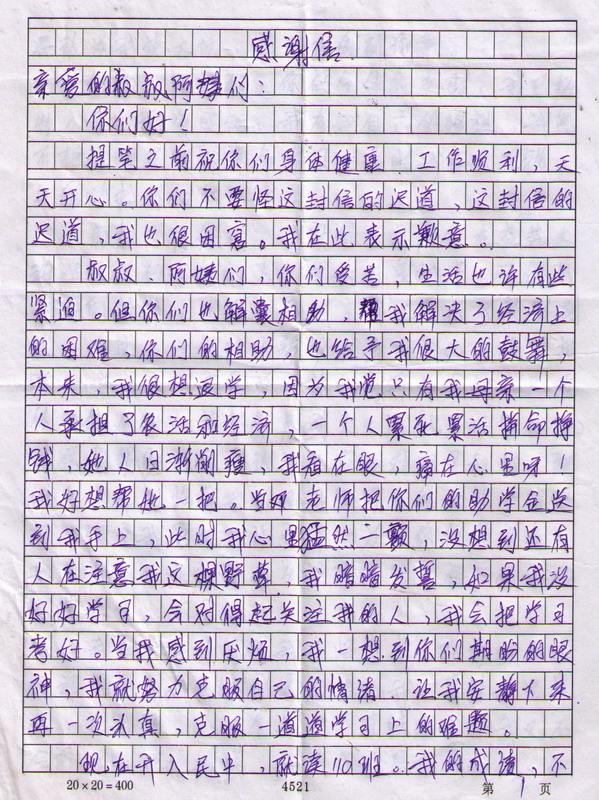 感谢信
亲爱的叔叔阿姨们：
你们好！
提笔之前祝你们身体健康、工作顺利，天
天开心。你们不要怪这封信的迟道，这封信的
迟道，我也很因窘。我在此表示歉意。
叔叔、阿姨们，你们爱苦，生活也许有些
紧迫。但你们也解囊相助，帮我解决了经济上
的困难，你们的相助，也给予我很大的鼓舞，
本来，我很想退学，因为我觉只有我母亲一个
人承担了农活和经济，一个人累死累活拚命挣
钱，她人日渐削瘦，我看在眼，痛在心里呀！
我好想帮她一把。当 老师把你们的助学金送
到我手上，此时我心里猛然一颤，没想到还有
人在注意我这棵野草，我暗暗发誓，如果我没
好好学习，会对得起关注我的人，我会把学习
考好。当我感到厌烦，我一想到你们期盼的眼
神，我就努力克服自己的情绪、让我安静下来
再一次认真，克服一道道学习上的难题。
现在升入民中，就读110班。我的成绩，不
20×20=400 4521 第 1 页